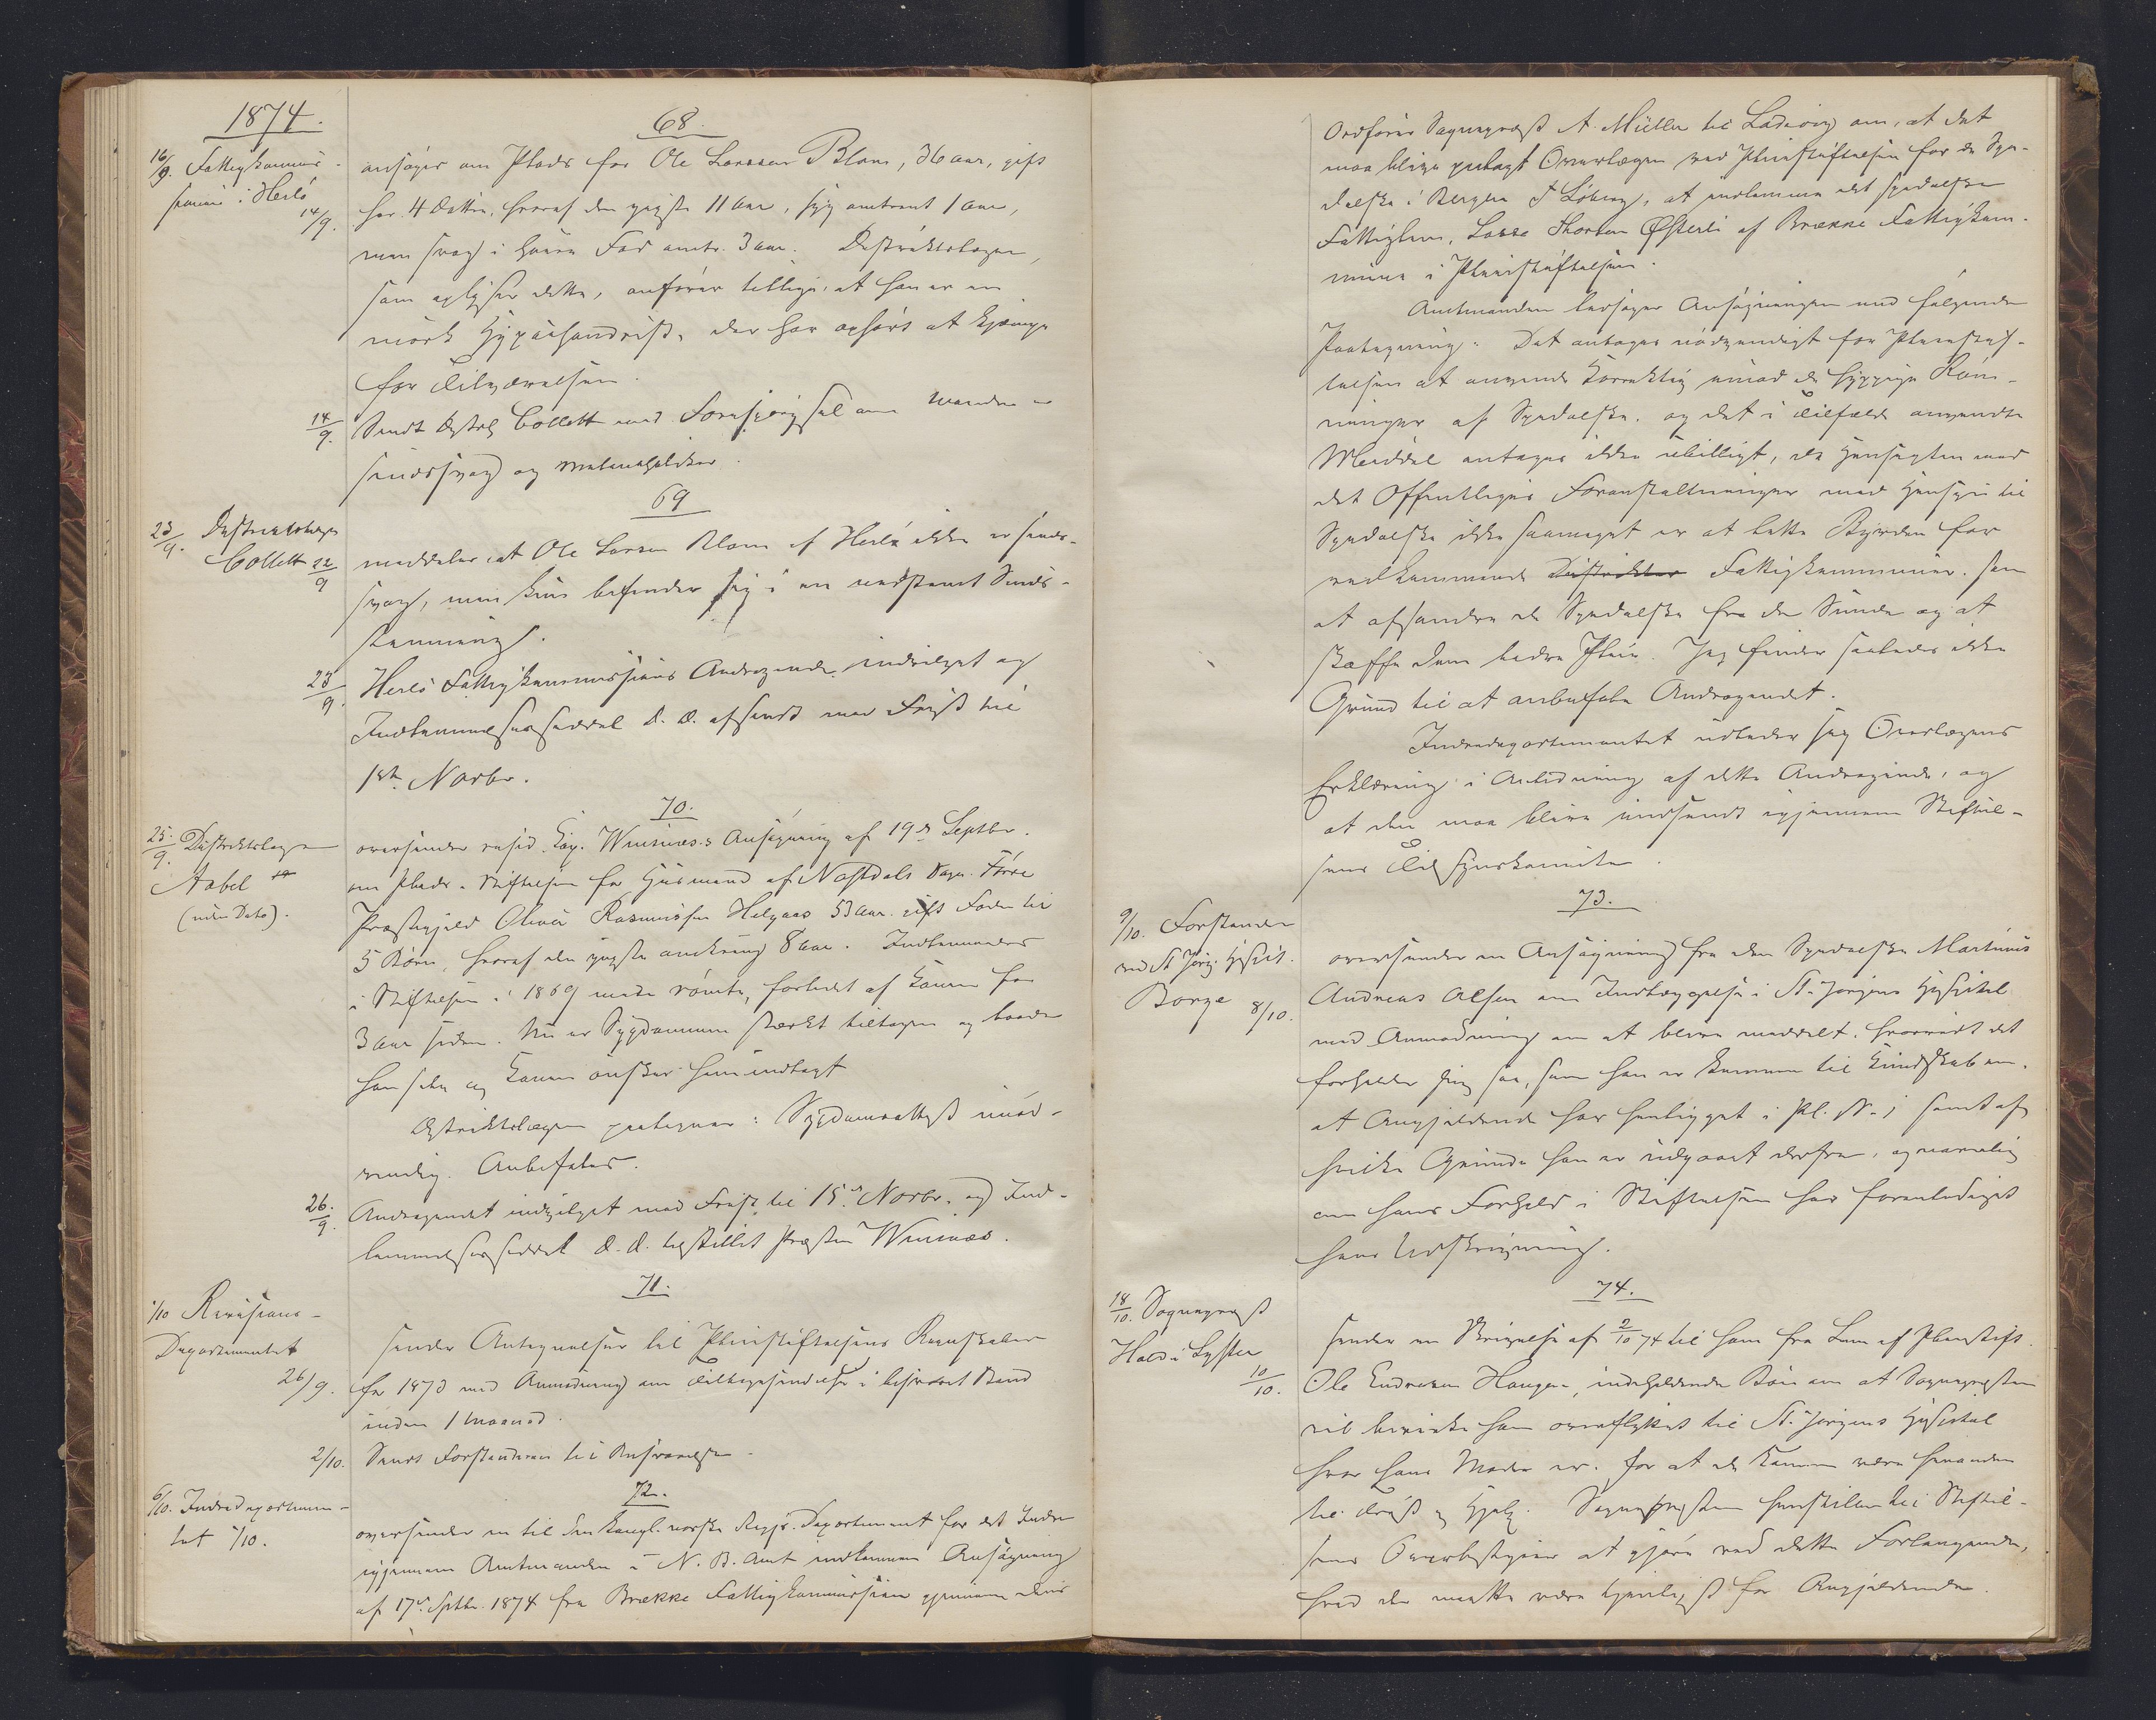 1874.
68.
16/9. Fattigkommis-
sionen i Herlø
14/9.
ansøger om Plads for Ole Larssen Blom, 36 aar, gift
har 4 Døttre, hvoraf den yngste 11 Aar, syg omtrent 1 Aar,
men svag i Fod omtr. 3 aar. Distriktslægen,
som oplyser dette, anfører tillige, at han er en
mørk Hypochondrist, der har ophørt at kjæmpe
for Tilværelsen.
14/9. Sendt Dstrlg Collett med Forespørgsel om Manden er
sindssvag og melancholiker.
69
23/9. Distriktslæge
Collett 22/9
meddeler, at Ole Larsen Blom af Herlø ikke er sinds-
svag, men kun befinder sig i en nedstemt Sinds-
stemning.
23/9. Herlø Fattigkommissions Andragende indvilget og
Indlemmelsesseddel d. D. afsendt med Frist til
1ste Novbr.
70.
25/9. Distriktslæge
Aabel
(uden Dato).
oversender resid. Cap. Wnsnes.s Ansøgning af 19de Septbr.
om Plads i Stiftelsen for Husmand af Naustdals Sogn Førde
Præstegjeld Oliver Rasmussen Helgaas 53 Aar. gift Fader til
5 Børn, hvoraf den yngste omkring 8 Aar. Indlemmedes
i Stiftelsen i 1869 men rømte, forledet af Konen for
3 Aar siden. Nu er Sygdommen stærkt tiltagen og baade
han selv og Konen ønsker ham indtagt
Distriktslægen paategner: Sygdomsattest unød-
vendig. Anbefales.
26/9. Andragendet indvilget med Frist til 15de Novbr. og Ind-
lemmelsesseddel d. d. tilstillet Præsten
71.
1/10 Revisions-
Departementet
26/9.
sender Antegnelser til Pleiestiftelsens Regnskaber
for 1873 med Anmodning om Tilbagesendelse i besvaret Stand
inden 1 Maaned.
2/10. Sendt Forstanderen til Besvarelse.
72.
6/10. Indredepartemen-
tet 1/10.
oversender en til den kongl. norske Regjs. Departement for det Indre
igjennem Amtmanden i N. B. Amt indkommen Ansøgning
af 17de Septbr. 1874 fra Brække Fattigkommission gjennem dens
Ordfører Sogneprest A. Müller til Ladvig om, at det
maa blive paalagt Overlægen ved Pleiestiftelsen for de Spe-
dalske i Bergen T Løberg, at indlemme det spedalske
Fattiglem, Lasse Thorsen Østerli af Brække Fattigkom-
mune i Pleiestiftelsen.
Amtmanden ledsager Ansøgningen med følgende
Paategning: Det antages nødvendigt for Pleiestif-
telsen at anvende Korrektiv imod de hyppige Røm-
ninger af Spedalske, og det i Tilfælde anvendte
Middel antages ikke ubilligt, da Hensigten med
det Offentliges Foranstaltninger med Hensyn til
Spedalske ikke saameget er at lette Byrden for
vedkommende Distrikter Fattigkommuner, som
at afsondre de Spedalske fra de Sunde og at
skaffe dem bedre Pleie. Jeg finder saaledes ikke
Grund til at anbefale Andragendet.
Indredepartementet udbeder sig Overlægens
Erklæring i Anledning af dette Andragende, og
at den maa blive indsendt igjennem Stiftel-
sens Tilsynskomite.
73.
9/10. Forstander
ved St Jørg. Hspit.
Borge 8/10.
oversender en Ansøgning fra den Spedalske Martinus
Andreas Olsen om Indlæggelse i St. Jørgens Hospital
med Anmodning om at blive meddelt, hvorvidt det
forholder sig saa, som han er kommen til Kundskab om,
at Angjeldende har henligget i Pl. St. i samt af
hvilke Grunde han er udgaaet derfra, og navnlig
om hans Forhold i Stiftelsen har foranlediget
hans Udskrivning.
74.
18/10. Sogneprest
Hald i Lyster
10/10.
sender en Skrivelse af 2/10 74 til ham fra Lem af Pleiestift.
Ole Endresen Haugen, indeholdende Bøn om at Sognepresten
vil bevirke ham overflyttet til St. Jørgens Hospital
hvor hans Moder er, for at de kunne være hinanden
til Trøst og Hjelp. Sognepresten henstiller til Stiftel-
sens Overbestyrer at gjøre ved dette Forlangende,
hvad der maatte være tjenligst for Angjeldende.